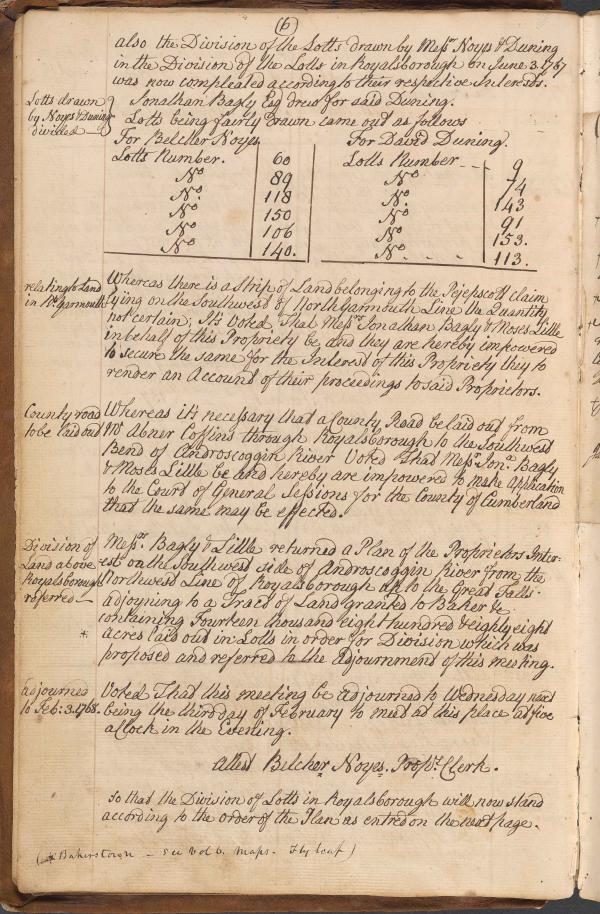 (6)
also the Division of the Lotts drawn by Messrs Noyes & Duning
in the Division of the Lotts in Royalsborough on June 3. 1767
was now compleated according to their respective Interests.
Lotts drawn
by Noyes & Duning
divided
Jonathan Bagly Esq drew for said Duning.
Lotts being fairly drawn came out as follows
For Belcher Noyes. For David Duning.
Lotts Number. 60 Lotts Number 9
No 89 No 74
No. 118 No. 143
No. 150 No 91
No 106 No 153.
No 140. No. 113.
relating to Land
in No. Yarmouth
Whereas there is a Strip of Land belonging to the Pejepscott claim
lying on the Southwest of North Yarmouth Line the Quantity
not certain; It's Voted, That Messrs Jonathan Bagly & Moses Little
in behalf of this Propriety be, and they are hereby impowered
to secure the same for the Interest of this Propriety they to
render an Account of their proceedings to said Proprietors.
County road
to be laid out
Whereas it's necessary that a County Road be laid out from
Mr Abner Coffins through Royalsborough to the Southwest
Bend of Androscoggin River Voted That Messrs Jona. Bagly
& Moses Little be and hereby are impowered to make Application
to the Court of General Sessions for the County of Cumberland
that the same may be effected.
Division of
Land above
Royalsborough
referred
Messrs. Bagly & Little returned a Plan of the Proprietors Inter-
est on the Southwest side of Androscoggin River from the
Northwest Line of Royalsborough up to the Great Falls
adjoyning to a Tract of Land granted to Baker &c
containing Fourteen thousand eight hundred & eighty eight
* acres laid out in Lotts in order for Division which was
proposed and referred to the Adjournment of this meeting.
Adjourned
to Feb: 3. 1768.
Voted That this meeting be adjourned to Wednesday next
being the third day of February to meet at this place at five
aClock in the Evening.
Attest Belcher Noyes. Proprs. Clerk.
So that the Division of Lotts in Royalsborough will now stand
according to the order of the Plan as entred on the next page.
(* Bakerstown - see Vol 6. Maps. Fly leaf)